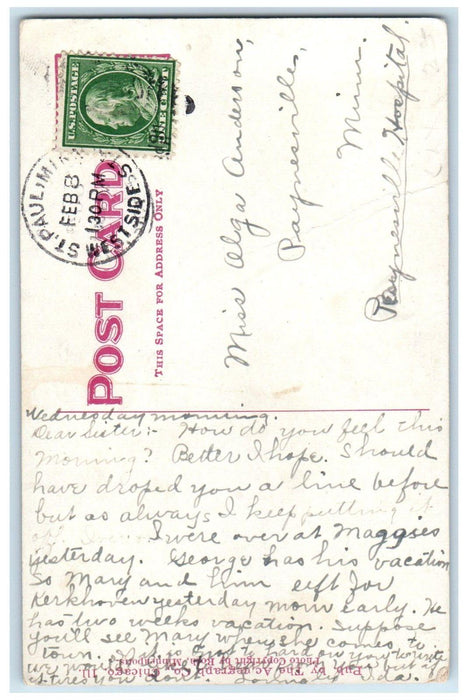 U.S. POSTAGE
ONE CENT
ST. PAUL, MINN.
FEB 8
1 30 PM
WEST SIDE STA
POST CARD
THIS SPACE FOR ADDRESS ONLY
Miss Olga Anderson,
Paynesville,
Minn.
Paynesville Hospital.
Wednesday morning.
Dear Sister:- How do you feel this
morning? Better I hope. Should
have droped you a line before
but as always I keep putting it
off. I were over at Maggies
yesterday. George has his vacation
So Mary and him left for
Kerkhoven yesterday morn early. He
has two weeks vacation. Suppose
you'll see Mary when she comes to
town. hard on you to write
we but
Ida.
Pub. by The Acmegraph Co. Chicago, Ill.
Photo Copyright by